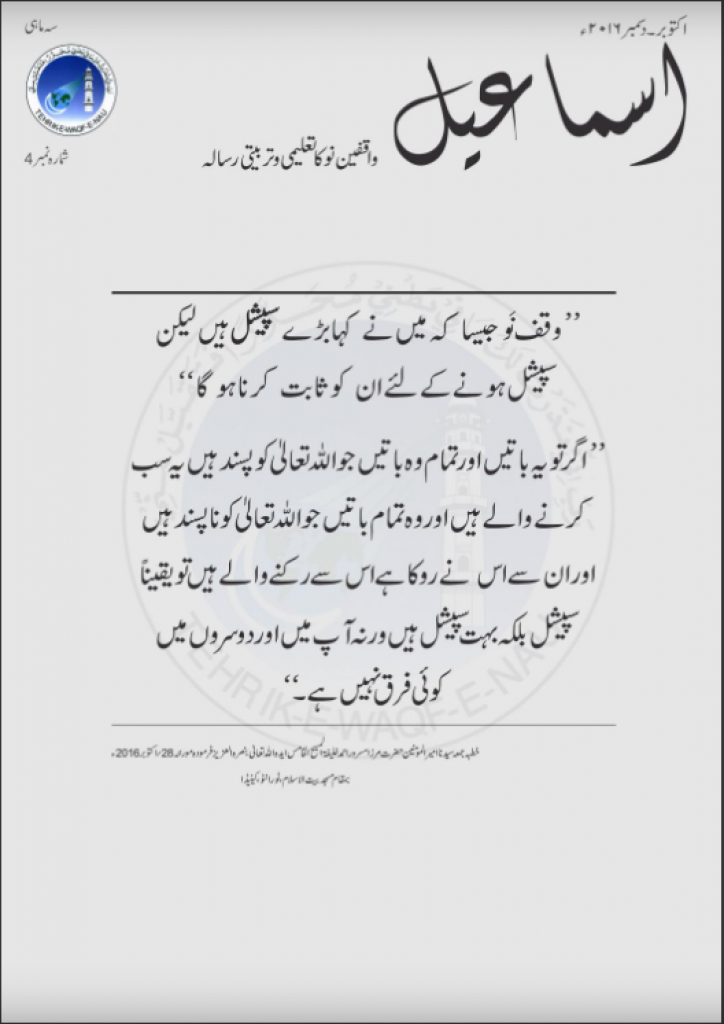 اکتوبر۔دسمبر ۲۰۱۶ء
سہ ماہی
اسماعیل
واقفین نو کا تعلیمی و تربیتی رسالہ
TEHRIK-E-WAQF-E-NAU
شمارہ نمبر 4
’’وقف نَو جیسا کہ میں نے کہا بڑے سپیشل ہیں لیکن
سپیشل ہونے کے لئے ان کو ثابت کرنا ہو گا‘‘
’’اگر تو یہ باتیں اور تمام وہ باتیں جو اللہ تعالیٰ کو پسند ہیں یہ سب
کرنے والے ہیں اور وہ تمام باتیں جو اللہ تعالیٰ کو ناپسند ہیں
اور ان سے اس نے روکا ہے اس سے رکنے والے ہیں تو یقیناً
سپیشل بلکہ بہت سپیشل ہیں ورنہ آپ میں اور دوسروں میں
کوئی فرق نہیں ہے۔‘‘
TEHRIK-E-WAQF-E-NAU
خطبہ جمعہ سیدنا امیر المومنین حضرت مرزا مسرور احمد خلیفۃ المسیح الخامس ایدہ اللہ تعالیٰ بنصرہ العزیز فرمودہ مورخہ 28/اکتوبر 2016ء
بمقام مسجد بیت الاسلام، ٹورانٹو، کینیڈا